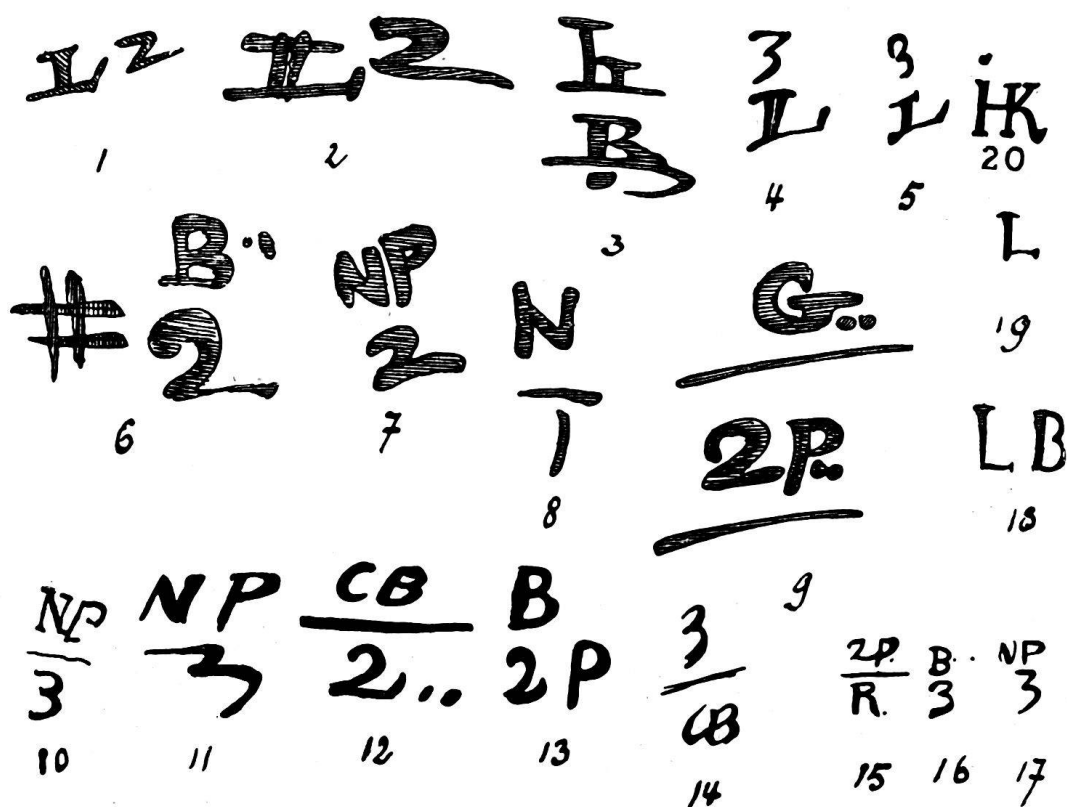 L 2
1
L 2
2
L
B
3
3
L
4
3
L
5
HK
20
L
19
# B..
2
6
NP
2
7
N
1
8
G..
2P..
9
LB
18
NP
3
10
NP
3
11
CB
2..
12
B
2P
13
3
CB
14
2P.
R.
15
B..
3
16
NP
3
17